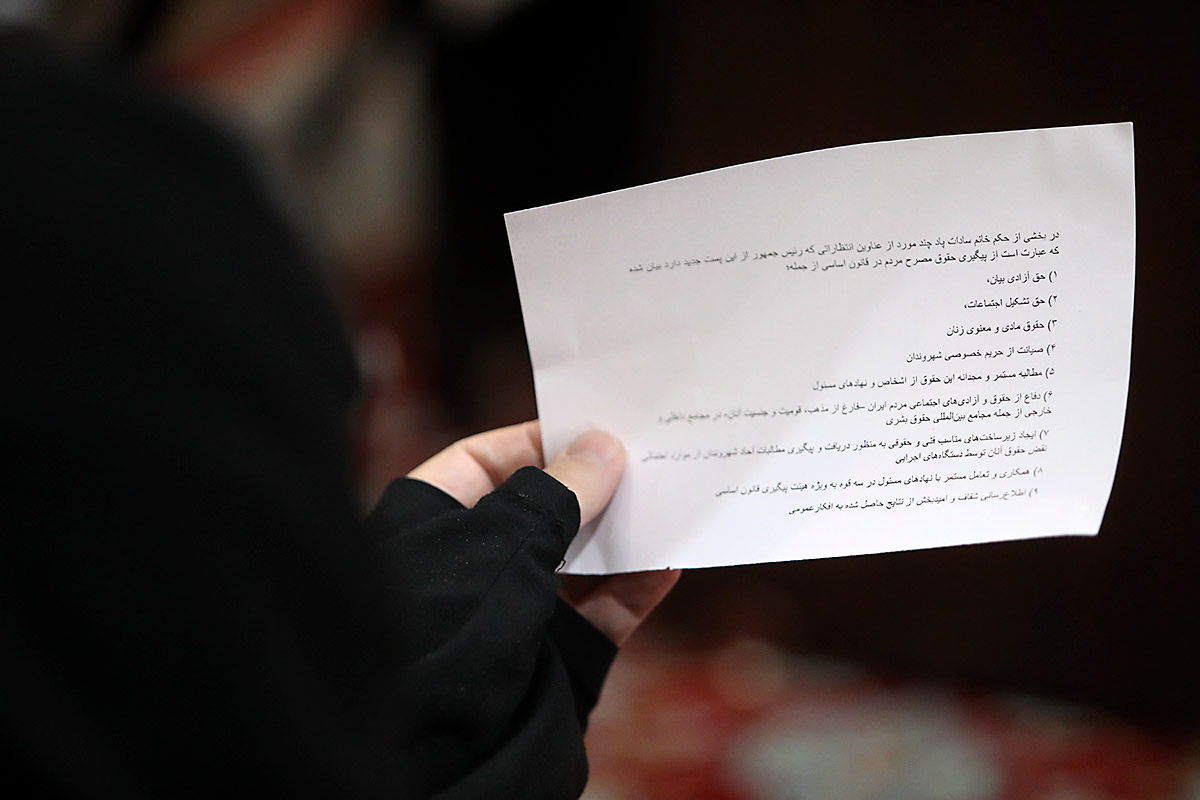 در بخشی از حکم خاتم سادات پاد چند مورد از عناوین انتظاراتی که رئیس جمهور از این پست جدید دارد بیان شده
که عبارت است از پیگیری حقوق مصرح مردم در قانون اساسی از جمله؛
۱) حق آزادی بیان،
۲) حق تشکیل اجتماعات،
۳) حقوق مادی و معنوی زنان
۴) صیانت از حریم خصوصی شهروندان
۵) مطالبه مستمر و مجدانه این حقوق از اشخاص و نهادهای مسئول
۶) دفاع از حقوق و آزادی‌های اجتماعی مردم ایران –فارغ از مذهب، قومیت و جنسیت آنان- در مجامع داخلی و
خارجی از جمله مجامع بین‌المللی حقوق بشری
۷) ایجاد زیرساخت‌های مناسب فنی و حقوقی به منظور دریافت و پیگیری مطالبات آحاد شهروندان از موارد احتمالی
نقض حقوق آنان توسط دستگاه‌های اجرایی
۸) همکاری و تعامل مستمر با نهادهای مسئول در سه قوه به ویژه هیئت پیگیری قانون اساسی
۹) اطلاع‌رسانی شفاف و امیدبخش از نتایج حاصل شده به افکارعمومی